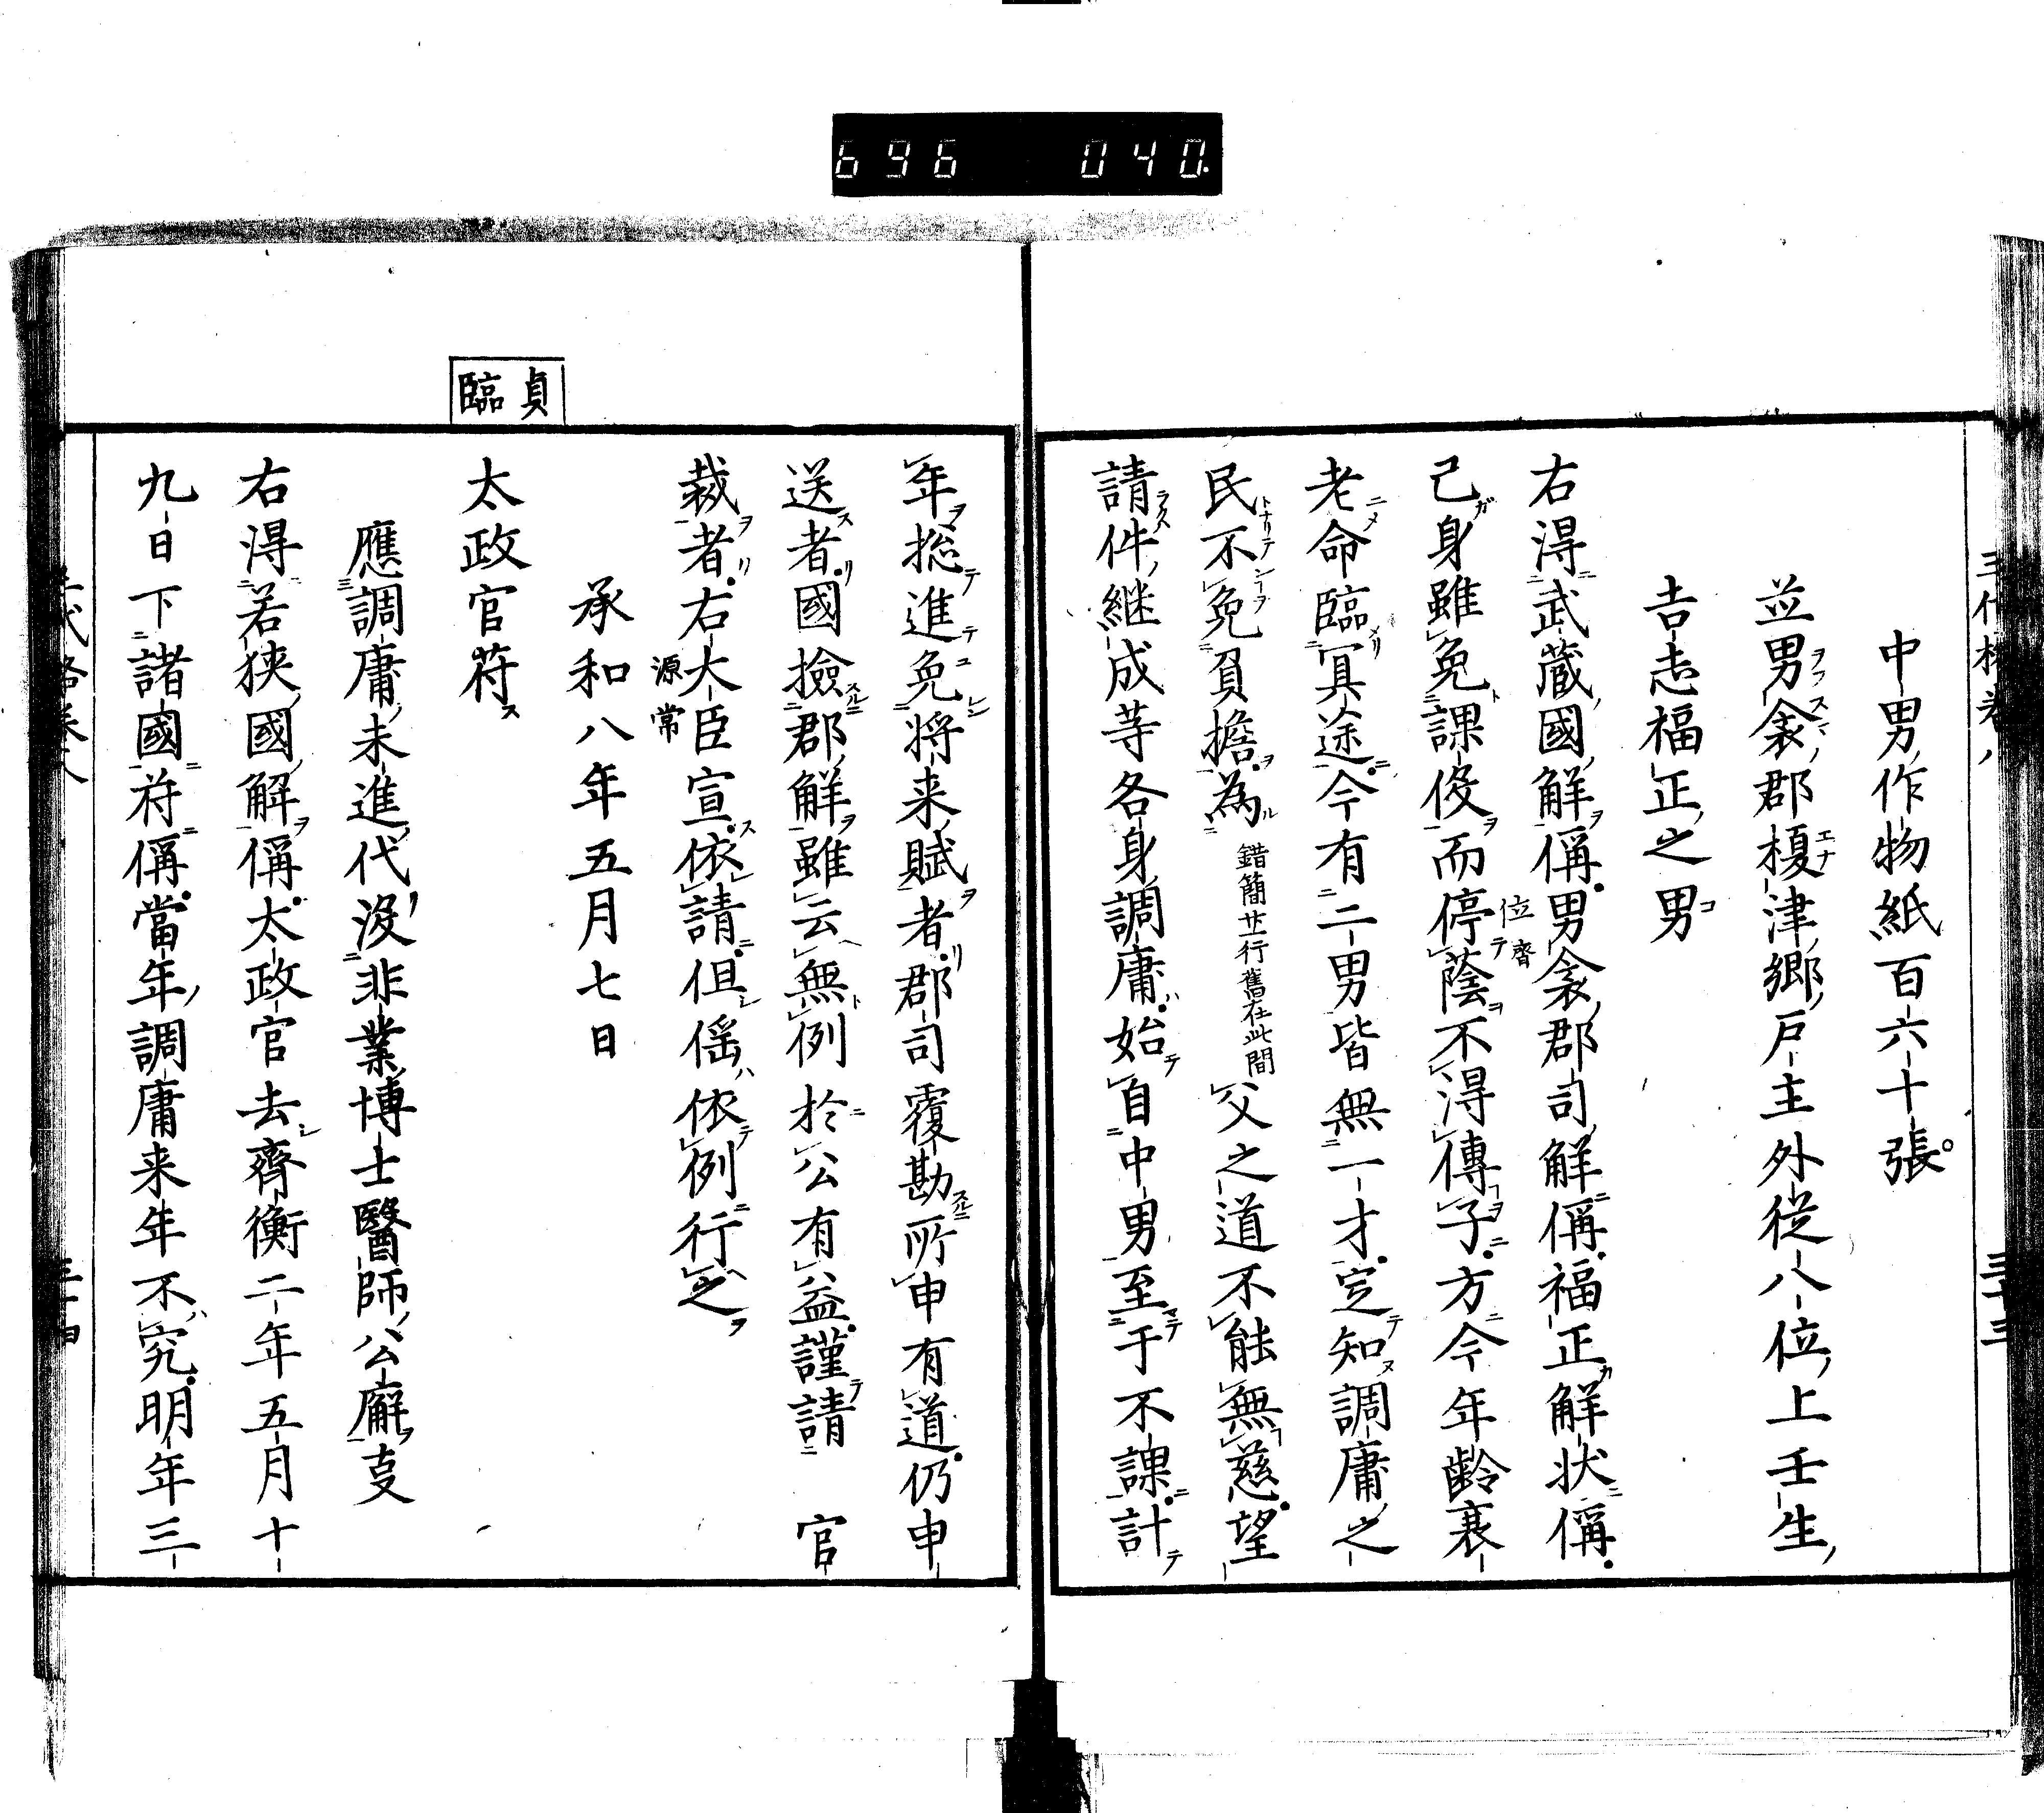 696 040.
中男作物紙百六十張。
並男衾郡榎津郷戸主外従八位上壬生
吉志福正之男
右得武蔵國解偁男衾郡司解偁福正解状偁
己身雖免課役而停蔭不得傳子方今年齢衰
位齊
老命臨冥途今有二男皆無一才定知調庸之
民不免負擔為錯簡廿一行舊在此間父之道不能無慈望
請件継成等各身調庸始自中男至于不課計
年捴進免将来賦者郡司覆勘所申有道仍申
送者國撿郡解雖云無例於公有益謹請 官
裁者右大臣宣依請但徭依例行之
源常
承和八年五月七日
貞臨
太政官苻
應調庸未進代沒非業博士醫師公廨支
右得若狭國解偁太政官去齊衡二年五月十
九日下諸國苻偁當年調庸来年不究明年三